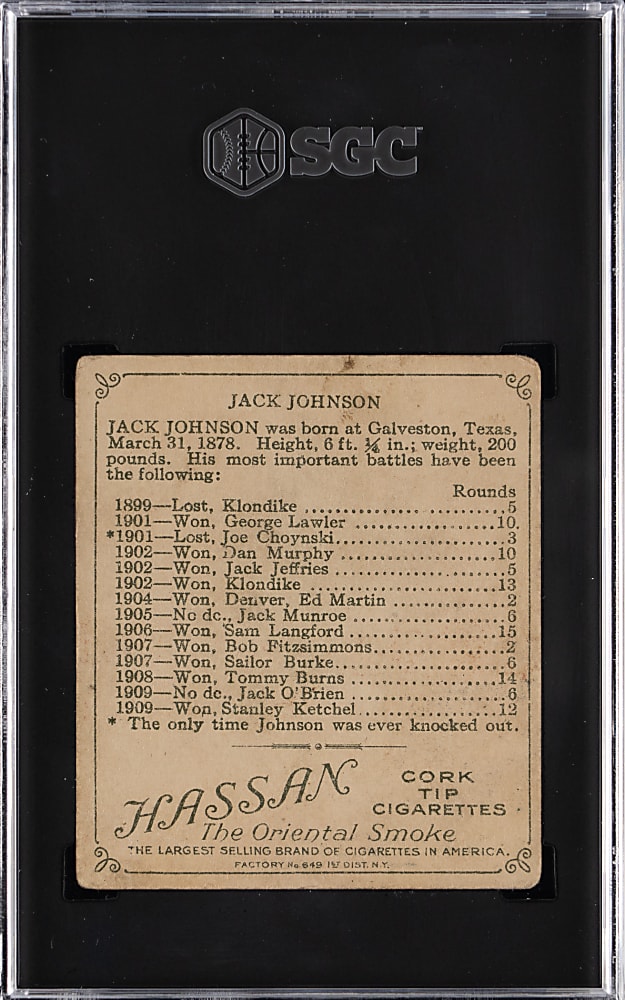 SGC
JACK JOHNSON
JACK JOHNSON was born at Galveston, Texas,
March 31, 1878. Height, 6 ft. ¾ in.; weight, 200
pounds. His most important battles have been
the following:
Rounds
1899—Lost, Klondike ........................5
1901—Won, George Lawler ....................10.
*1901—Lost, Joe Choynski....................3
1902—Won, Dan Murphy .....................10
1902—Won, Jack Jeffries .....................5
1902—Won, Klondike ........................13
1904—Won, Denver, Ed Martin ..............2
1905—No dc., Jack Munroe ..................6
1906—Won, Sam Langford ...................15
1907—Won, Bob Fitzsimmons................2
1907—Won, Sailor Burke.....................6
1908—Won, Tommy Burns ...................14
1909—No dc., Jack O'Brien ..................6
1909—Won, Stanley Ketchel..................12
* The only time Johnson was ever knocked out.
HASSAN CORK
TIP
CIGARETTES
The Oriental Smoke
THE LARGEST SELLING BRAND OF CIGARETTES IN AMERICA.
FACTORY No 649 1ST DIST. N.Y.